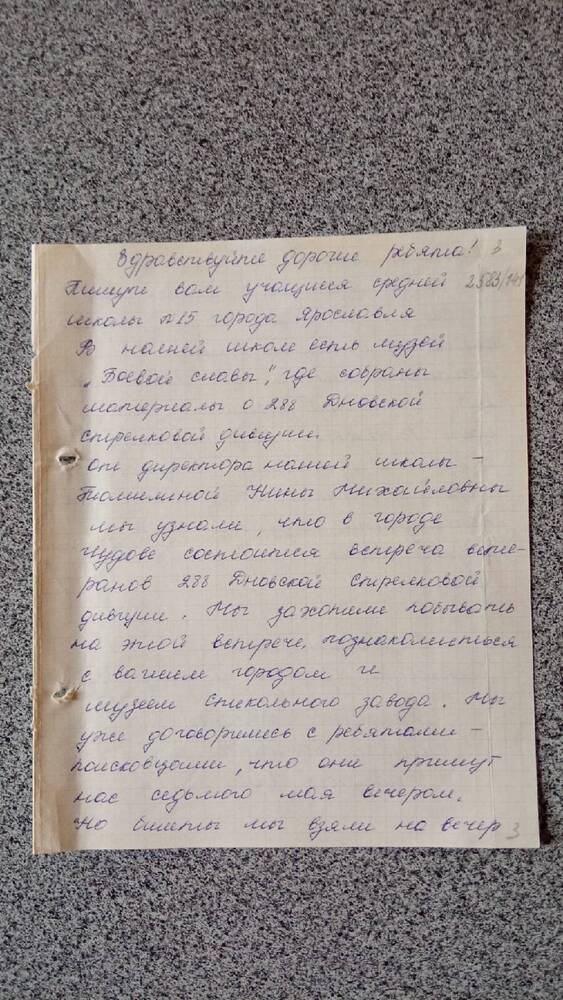 Здравствуйте дорогие ребята! 3
Пишут вам учащиеся средней 2583/141
школы №15 города Ярославля
В нашей школе есть музей
„Боевой славы", где собраны
материалы о 288 Дновской
стрелковой дивизии.
От директора нашей школы –
Нины Михайловны
мы узнали, что в городе
Чудове состоится встреча вете-
ранов 288 Дновской стрелковой
дивизии. Мы захотели побывать
на этой встрече, познакомиться
с вашим городом и
музеем стекольного завода. Мы
уже договорились с ребятами –
поисковцами, что они примут
нас седьмого мая вечером.
Но билеты мы взяли на вечер 3